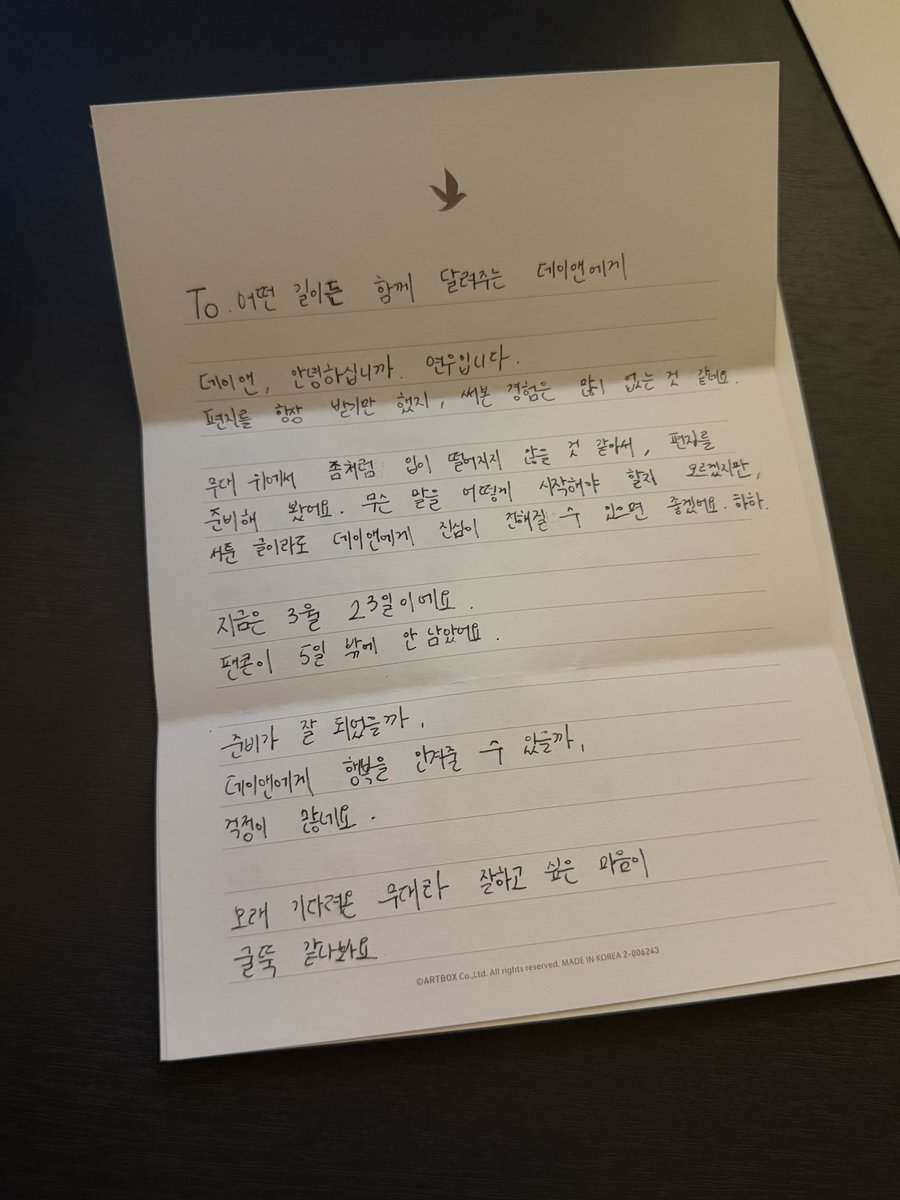 To. 어떤 길이든 함께 달려주는 데이앤에게
데이앤, 안녕하십니까. 연우입니다.
편지를 항상 받기만 했지, 써본 경험은 많이 없는 것 같네요.
무대 위에서 좀처럼 입이 떨어지지 않을 것 같아서, 편지를
준비해 봤어요. 무슨 말을 어떻게 시작해야 할지 모르겠지만,
서툰 글이라도 데이앤에게 진심이 전해질 수 있으면 좋겠어요. 하하.
지금은 3월 23일이에요.
팬콘이 5일 밖에 안 남았어요.
준비가 잘 되었을까,
데이앤에게 행복을 안겨줄 수 있을까,
걱정이 많네요.
오래 기다려온 무대라 잘하고 싶은 마음이
굴뚝 같나봐요
©ARTBOX Co.,Ltd. All rights reserved. MADE IN KOREA 2-006243